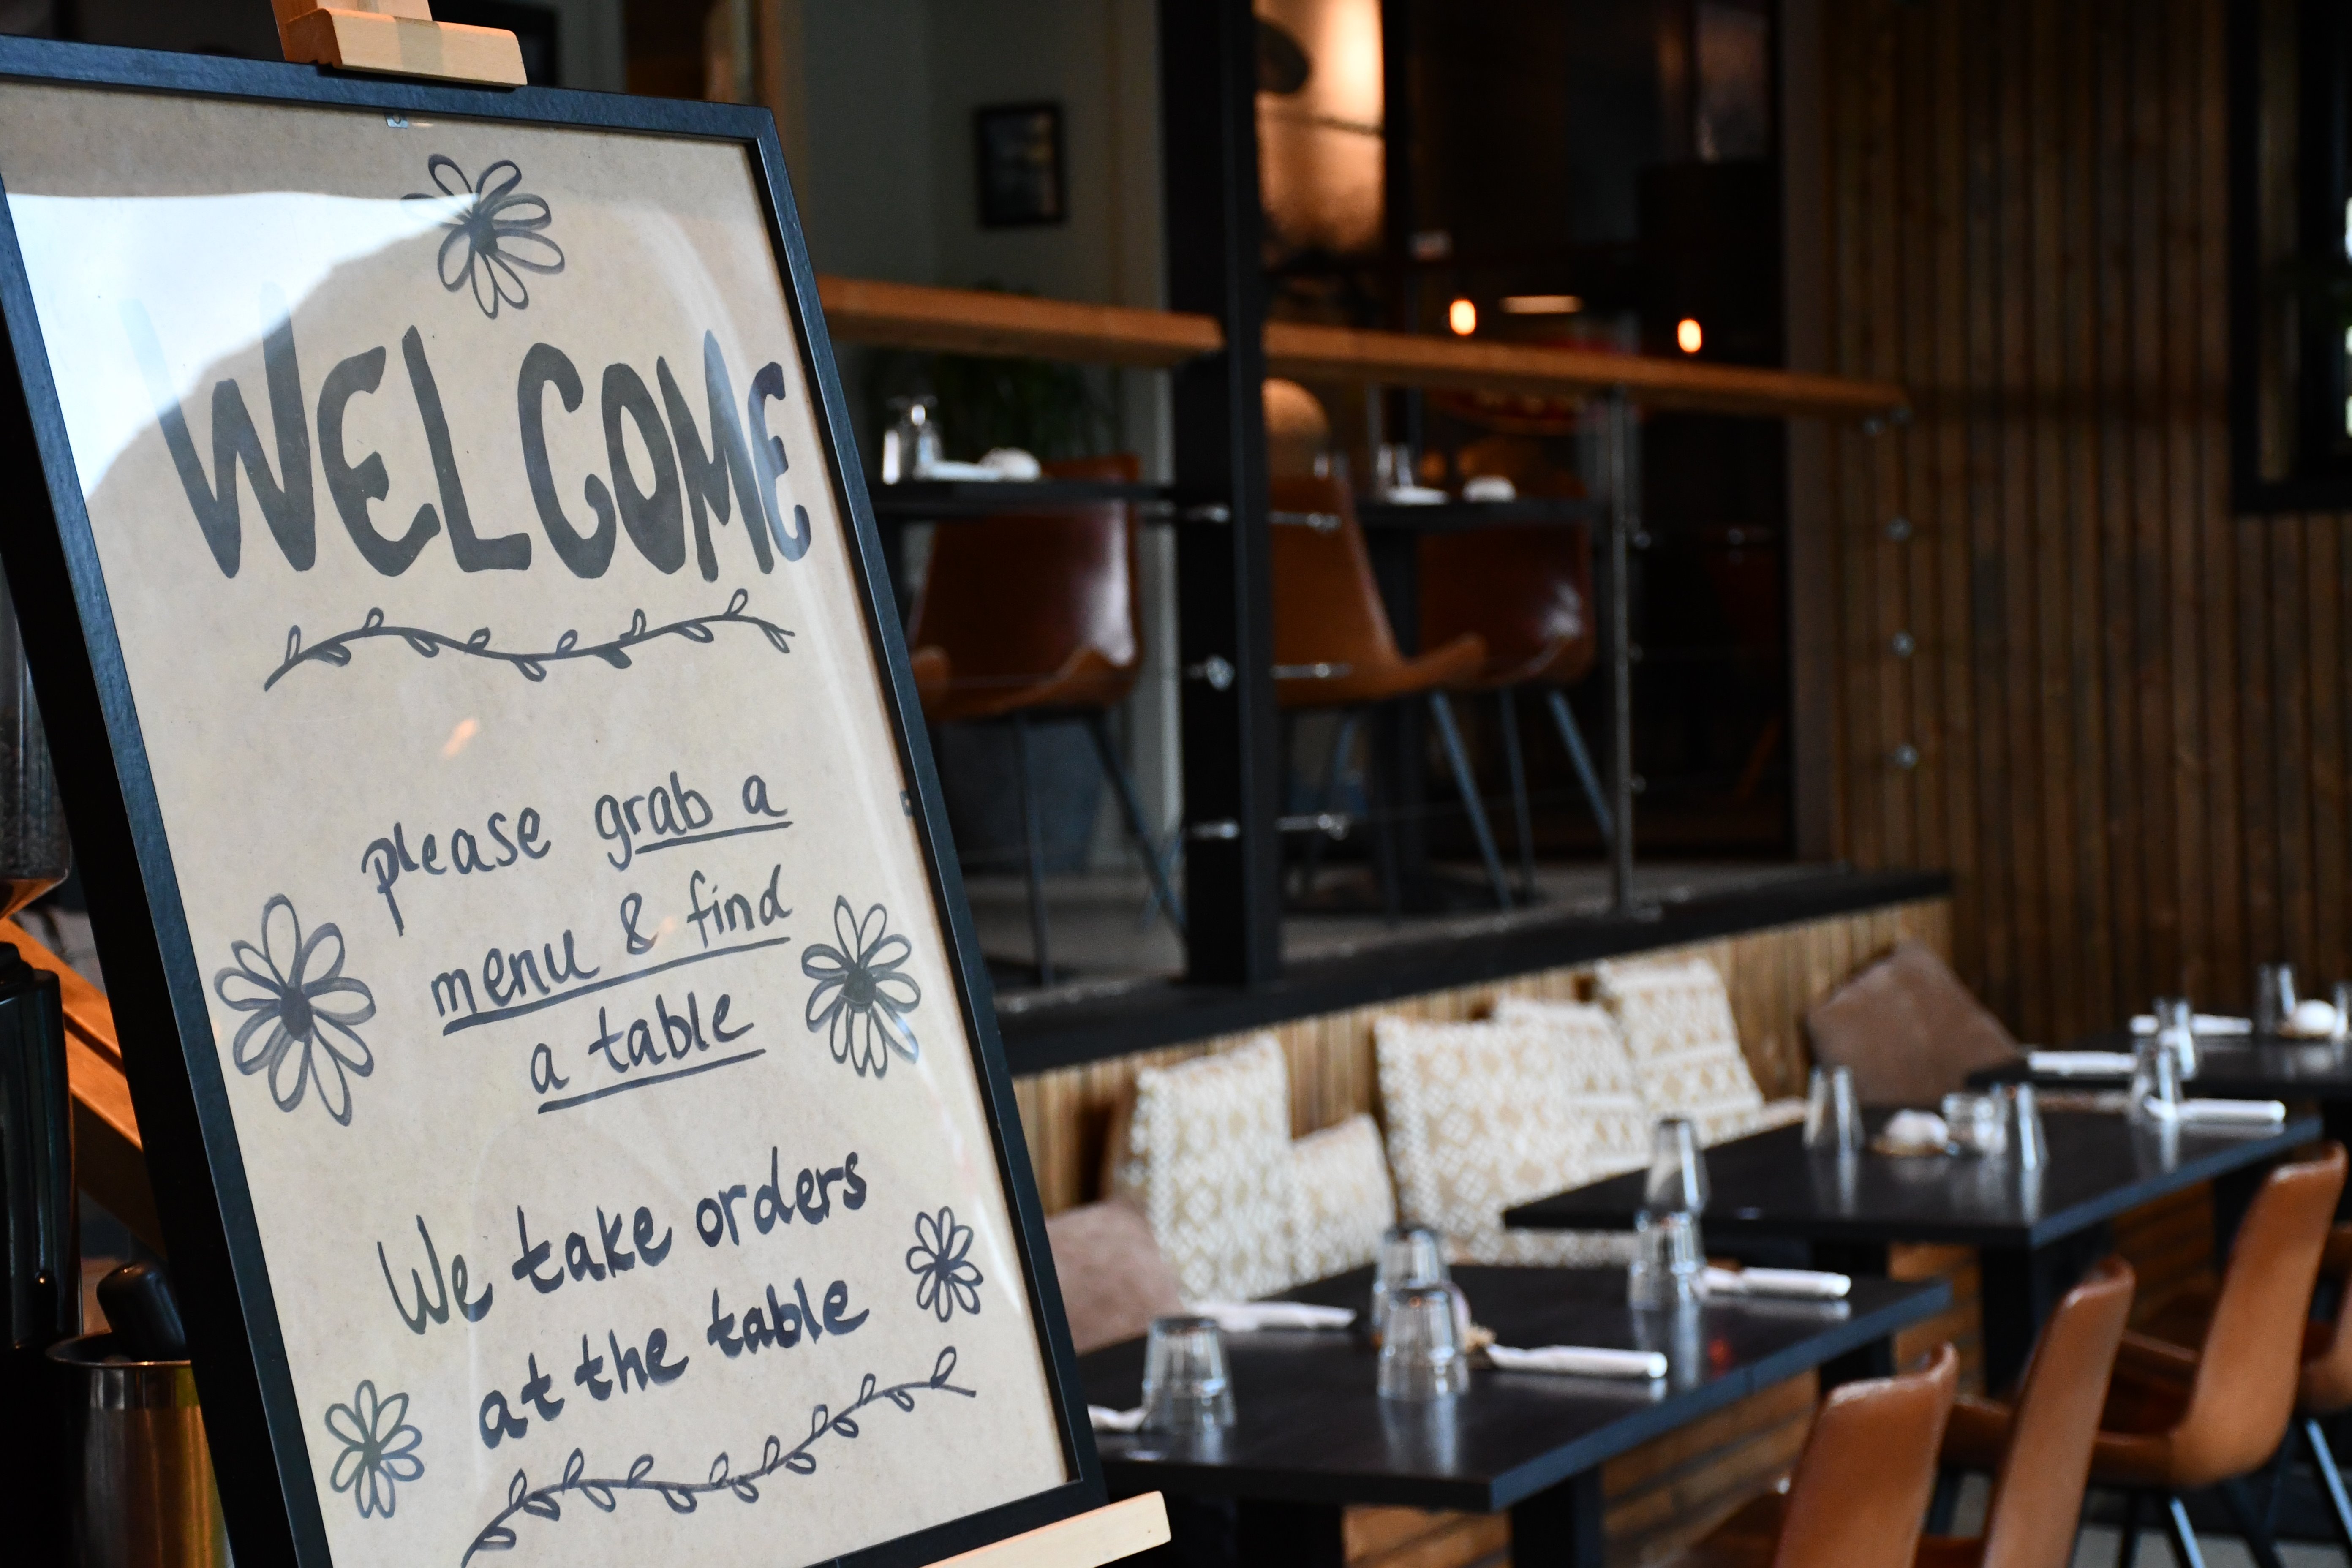 WELCOME
please grab a
menu & find
a table
We take orders
at the table